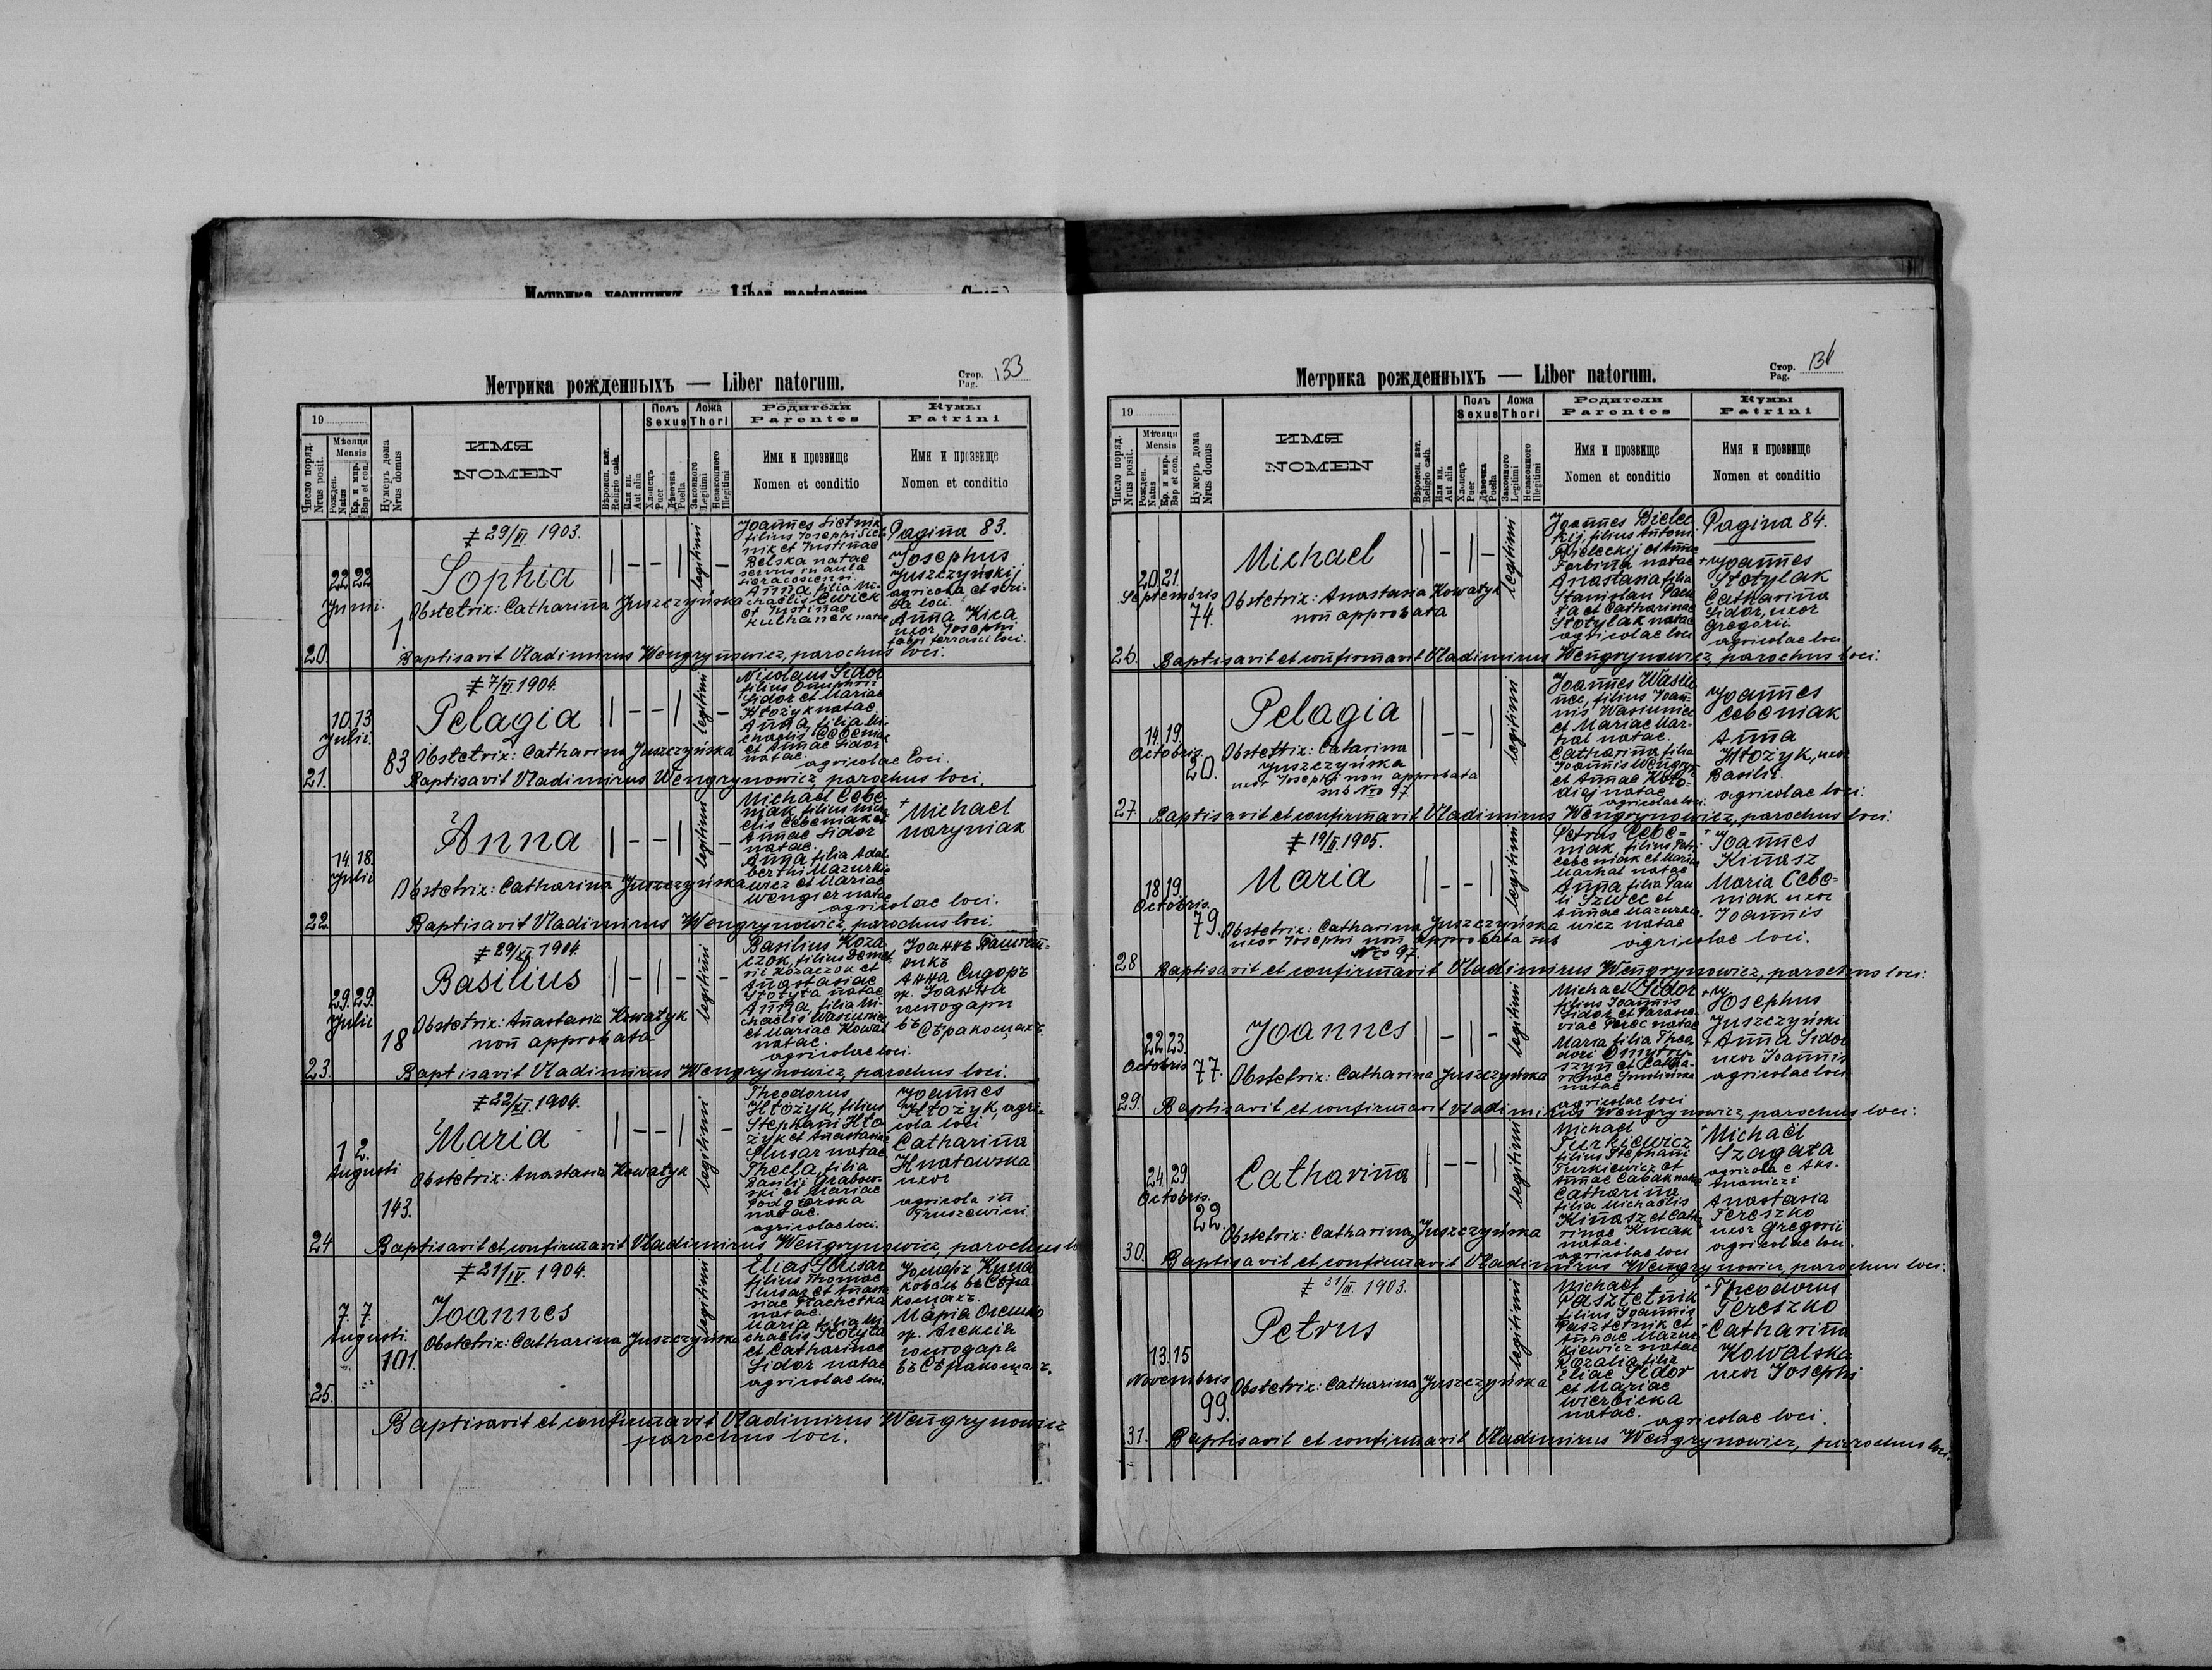 Метрика рожденныхъ — Liber natorum.
Стор.
Pag.
133
19
Число поряд.
Nrus posit.
Мѣсяця
Mensis
Рожден.
Natus
Кр. и мир.
Bap et con.
Нумеръ дома
Nrus domus
ИМЯ
NOMEN
Религio cath.
Или ин.
Aut alia
Полъ
Sexus
Хлопецъ
Puer
Дѣвочка
Puella
Ложа
Thori
Законного
Legitimi
Незаконного
Illegitimi
Родители
Parentes
Имя и прозвище
Nomen et conditio
Кумы
Patrini
Имя и прозвище
Nomen et conditio
ǂ 29/VI. 1903.
Sophia
22 22
Junii
1
Obstetrix: Catharina Juszczyńska
legitimi
Joannes Sietnik
filius Josephi Siet-
nik et Justinae
Belska natae
servus in aula
Anna, filia Mi-
chaelis Ćwiek
et Justinae
Kulhanek natae
Pagina 83.
Josephus
Juszczyński,
agricola et
loci.
Anna Kica
uxor Josephi
fabri ferrarii loci.
20.
Baptisavit Vladimirus Wengrynowicz, parochus loci.
ǂ 7/VI. 1904.
Pelagia
10 13
Julii.
83
Obstetrix: Catharina Juszczyńska
legitimi
Nicolaus Sidor
filius Onuphrii
Sidor et Mariae
Hłożyk natae.
Anna, filia Mi-
chaelis Cebeniak
et Annae Sidor
natae.
agricolae loci.
21.
Baptisavit Vladimirus Wengrynowicz, parochus loci.
Anna
14. 18.
Julii
Obstetrix: Catharina Juszczyńska
legitimi
Michael Cebe-
niak, filius Mich-
elis Cebeniak et
Annae Sidor
natae.
Anna, filia Adal-
berthi Mazurkie-
wicz et Mariae
Wengier natae
agricolae loci.
+ Michael
Maryniak
22.
Baptisavit Vladimirus Wengrynowicz, parochus loci.
ǂ 29/XI. 1904.
Basilius
29. 29.
Julii
18
Obstetrix: Anastasia Kowatyk
non approbata
legitimi
Basilius Koza-
czok, filius Demet-
rii Kozaczok et
Anastasiae
Stotyta natae
Anna, filia Mi-
chaelis Wasiunice
et Mariae Kowal
natae.
agricolae loci.
Іоаннъ Паштет-
никъ
Анна Сидоръ
ж. Іоанна
господари
въ Сѣракощахъ.
23.
Baptisavit Vladimirus Wengrynowicz, parochus loci.
ǂ 22/XI. 1904.
Maria
1 2.
Augusti
143.
Obstetrix: Anastasia Kowatyk
legitimi
Theodorus
Hłożyk, filius
Stephani Hło-
żyk et Anastasiae
Slusar natae
Thecla, filia
Basilii Grabow-
ski et Mariae
Podgórska
natae.
agricolae loci.
Joannes
Hłożyk, agri-
cola loci
Catharina
Hnatowska
uxor
agricola in
Truszewicci.
24
Baptisavit et confirmavit Vladimirus Wengrynowicz, parochus
ǂ 21/IV. 1904.
Joannes
7. 7.
Augusti.
101.
Obstetrix: Catharina Juszczyńska
legitimi
Elias Slusar
filius Thomae
Slusar et Anasta-
siae Płachetka
natae.
Maria filia Mi-
chaelis Stotyta
et Catharinae
Sidor natae
agricolae loci
Іосифъ Кица
коваль въ Сѣра-
кощахъ.
Марія Олешко
ж. Алексія
господаря
въ Сѣракощахъ.
25.
Baptisavit et confirmavit Vladimirus Wengrynowicz
parochus loci.
Метрика рожденныхъ — Liber natorum.
Стор.
Pag.
19
Число поряд.
Nrus posit.
Мѣсяця
Mensis
Рожден.
Natus
Кр. и мир.
Bap et con.
Нумеръ дома
Nrus domus
ИМЯ
NOMEN
Religio cath.
Или ин.
Aut alia
Полъ
Sexus
Хлопецъ
Puer
Дѣвочка
Puella
Ложа
Thori
Законного
Legitimi
Незаконного
Illegitimi
Родители
Parentes
Имя и прозвище
Nomen et conditio
Кумы
Patrini
Имя и прозвище
Nomen et conditio
Michael
20. 21.
Septembris
74.
Obstetrix: Anastasia Kowatyk
non approbata
legitimi
Joannes Bielec-
kij, filius Antoni
Bieleckij et Annae
Forbina natae
Anastasia filia
Stanislai
et Catharinae
Stotylak natae
agricolae loci
Pagina 84.
+ Joannes
Stotylak
Catharina
Sidor, uxor
Gregorii
agricolae loci
26.
Baptisavit et confirmavit Vladimirus Wengrynowicz, parochus loci.
Pelagia
14. 19.
Octobris.
20.
Obstetrix: Catarina
Juszczyńska
uxor Josephi non approbata
sub Nro 97.
legitimi
Joannes Wasiu-
nec, filius Joan-
nis Wasiunice
et Mariae Mar-
hal natae.
Catharina, filia
Joannis Wengryn
et Annae Koło-
diej natae
agricolae loci.
Joannes
Cebeniak
Anna
Hłożyk, uxor
Basilii.
agricolae loci.
27.
Baptisavit et confirmavit Vladimirus Wengrynowicz, parochus loci.
ǂ 19/II. 1905.
Maria
18 19
Octobris.
79.
Obstetrix: Catharina Juszczyńska
uxor Josephi non approbata sub
Nro 97.
legitimi
Petrus Cebe-
niak, filius Petri
Cebeniak et Mariae
Marhal natae
Anna filia Pau-
li Szwec et
Annae Mazurkie-
wicz natae
agricolae loci.
+ Joannes
Kinasz
Maria Cebe-
niak uxor
Joannis
28
Baptisavit et confirmavit Vladimirus Wengrynowicz, parochus loci.
Joannes
22 23.
Octobris
77.
Obstetrix: Catharina Juszczyńska
legitimi
Michael Sidor
filius Joannis
Sidor et Parasce-
viae Perec natae
Maria filia Theo-
dori Dmytry-
szyn et Catha-
rinae Smolińska
natae
agricolae loci
+ Josephus
Juszczyński
+ Anna Sidor
uxor Joannis
agricolae loci
29.
Baptisavit et confirmavit Vladimirus Wengrynowicz, parochus loci.
Catharina
24. 29.
Octobris.
22.
Obstetrix: Catharina Juszczyńska
legitimi
Michael
Turkiewicz
filius Stephani
Turkiewicz et
Annae Cabak natae
Catharina
filia Michaelis
Kinasz et Catha-
rinae Kucak
natae.
agricolae loci
+ Michael
Szagała
agricola e Aks-
maniczi
Anastasia
Tereszko
uxor Gregorii
agricolae loci.
30.
Baptisavit et confirmavit Vladimirus Wengrynowicz, parochus loci.
ǂ 31/III. 1903.
Petrus
13. 15
Novembris
99.
Obstetrix: Catharina Juszczyńska
legitimi
Michael
Pasztetnik
filius Joannis
Pasztetnik et
Annae Mazur-
kiewicz natae
Rozalia filia
Eliae Sidor
et Mariae
Wierbicka
natae.
agricolae loci.
+ Theodorus
Tereszko
+ Catharina
Kowalska
uxor Josephi
31.
Baptisavit et confirmavit Vladimirus Wengrynowicz, parochus loci.